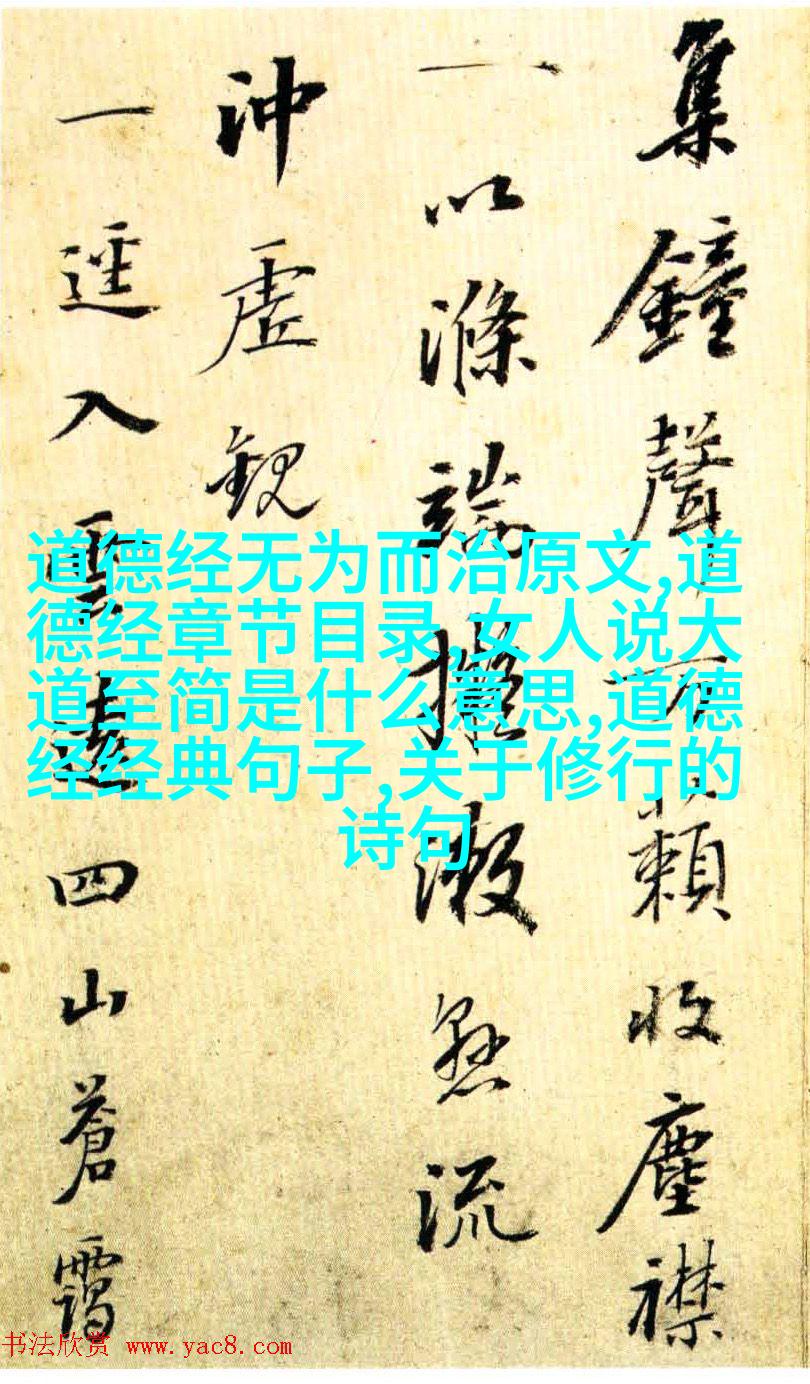 集鐘聲万籟收塵襟
一以滌流
沖虛觀
一逕入雲遠四山蒼靄
道德经无为而治原文,道
德经章节目录,女人说大
道至简是什么意思,道德
经经典句子,关于修行的
诗句
书法欣赏 www.yac8.com